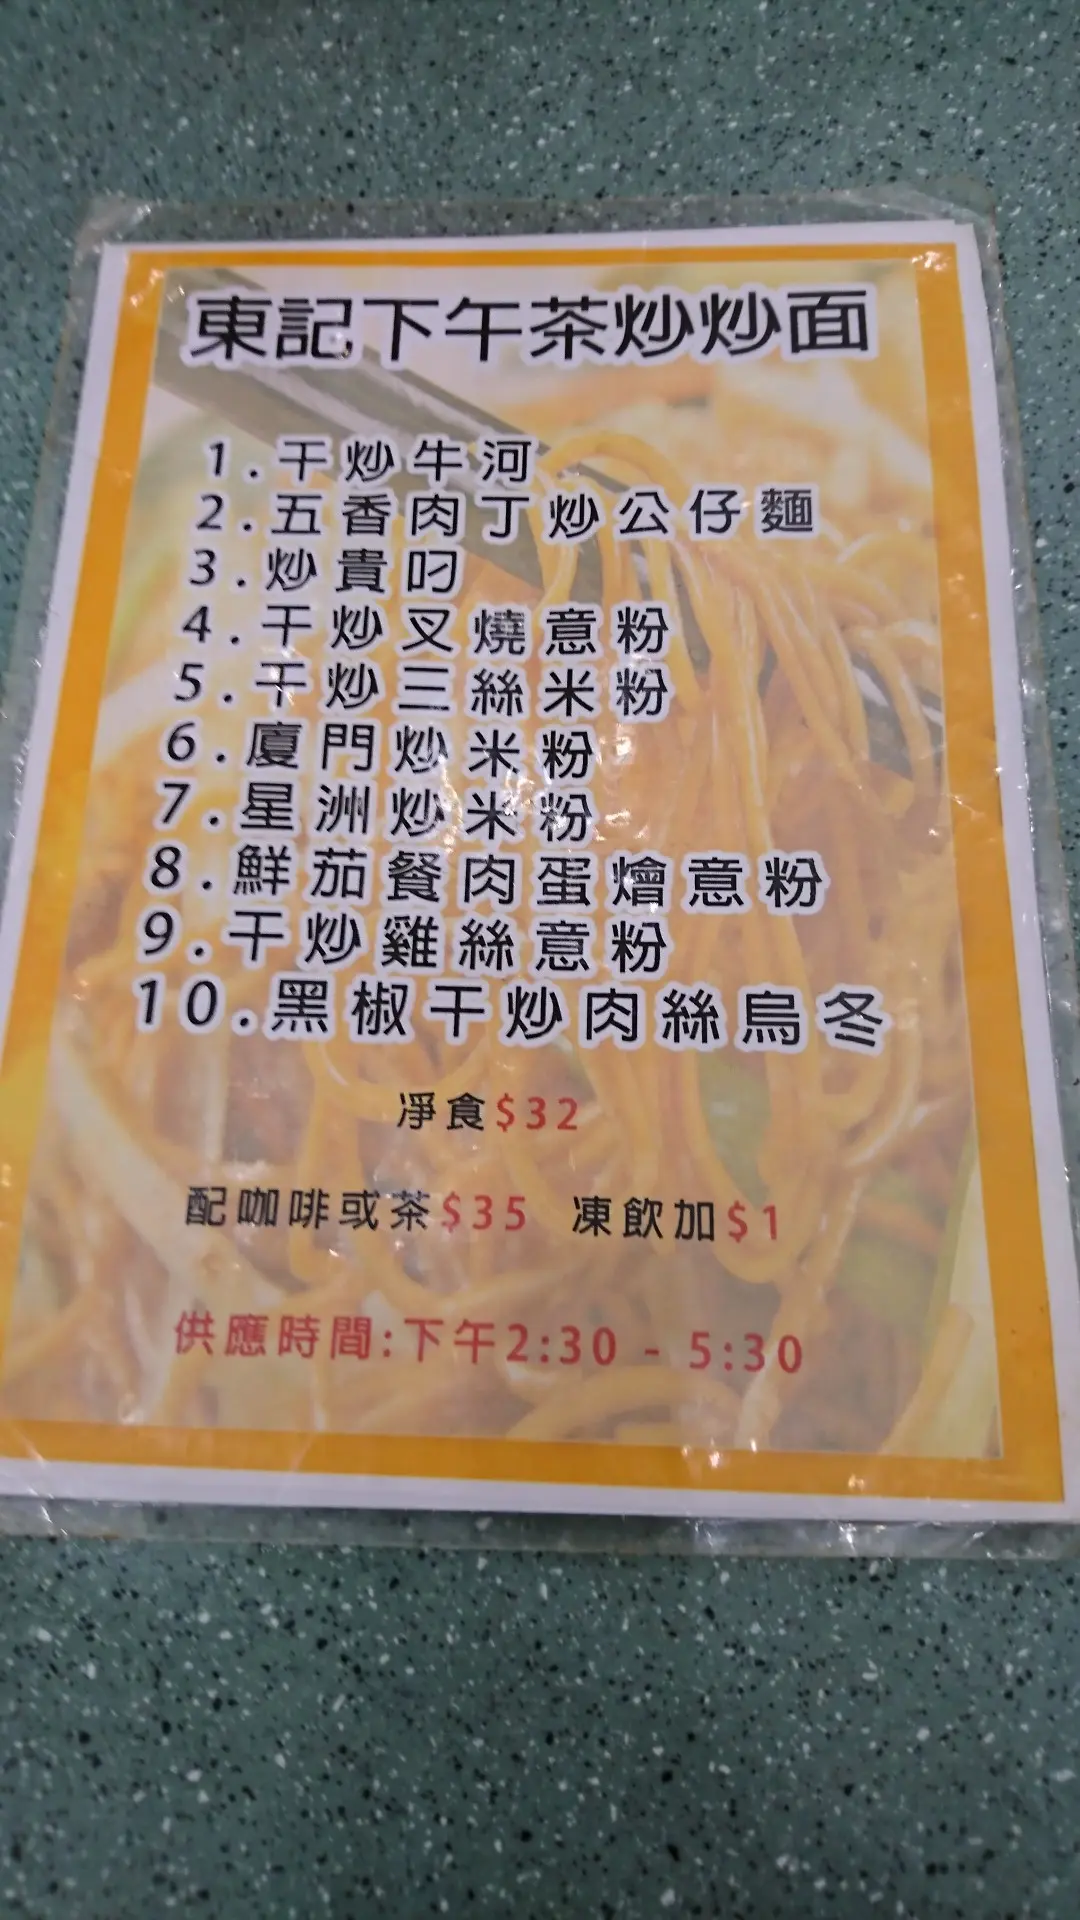 東記下午茶炒炒面
1.干炒牛河
2.五香肉丁炒公仔麵
3.炒貴叼
4.干炒叉燒意粉
5.干炒三絲米粉
6.廈門炒米粉
7.星洲炒米粉
8.鮮茄餐肉蛋燴意粉
9.干炒雞絲意粉
10.黑椒干炒肉絲烏冬
凈食$32
配咖啡或茶$35 凍飲加$1
供應時間:下午2:30 - 5:30